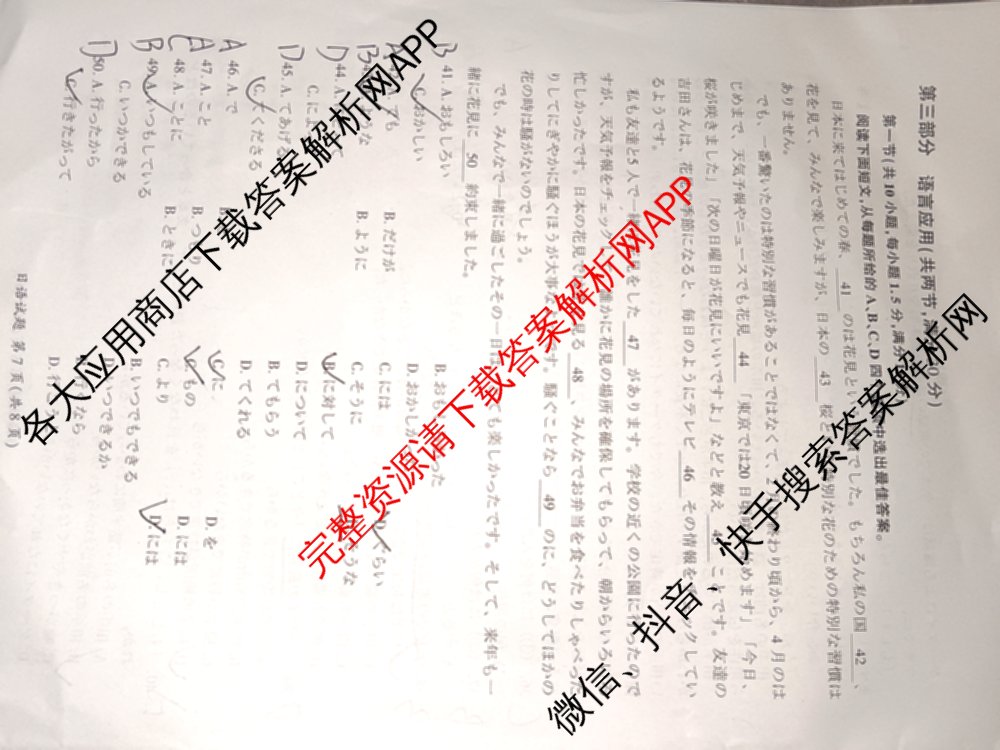 第三部分 语言应用(共两节,满 0分)
第一节(共10小题,每小题1.5分,满分
阅读下面短文,从每题所给的A、B、C、D四 中选出最佳答案。
日本に来てはじめての春、 41 のは花見とい でした。もちろん私の国 42 、
花を見て、みんなで楽しみますが、日本の 43 桜と 別な花のための特別な習慣は
ありません。
でも、一番驚いたのは特別な習慣があることではなくて、 わり頃から、4月のは
じめまで、天気予報やニュースでも花見 44 「東京では20日頃 めます」「今日、
桜が咲きました」「次の日曜日が花見にいいですよ」などと教え ことです。友達の
吉田さんは、花 季節になると、毎日のようにテレビ 46 その情報を ックしてい
るようです。
私も友達と5人で一緒 見をした 47 があります。学校の近くの公園に行ったので
すが、天気予報をチェック 誰かに花見の場所を確保してもらって、朝からいろ
忙しかったです。日本の花見 見る 48 、みんなでお弁当を食べたりしゃべっ
りしてにぎやかに騒ぐほうが大事な です。騒ぐことなら 49 のに、どうしてほかの
花の時は騒がないのでしょう。
でも、みんなで一緒に過ごしたその一日は ても楽しかったです。そして、来年も一
緒に花見に 50 約束しました。
B 41. A. おもしろい B. おも った
C. おかしい D. おかしか
A も B. だけが C. には D. ぐらい
B ような B. ように C. そうに うな
D 44. A. に C. によ B. に対して D. について
D 45. A. てあげ B. てもらう
C. てくださる D. てくれる
A 46. A. で C. に D. を
A 47. A. こと B. つもり C. もの D. には
C 48. A. ことに B. ときに C. より D. には
B 49. A. いつもしている B. いつでもできる
C. いつかできる いつできるか
D 50. A. 行ったから B. 行 なら
C. 行きたがって D. 行
日语试题 第7页(共8页)
各大应用商店下载答案解析网APP
完整资源请下载答案解析网APP
微信、抖音、快手搜索答案解析网